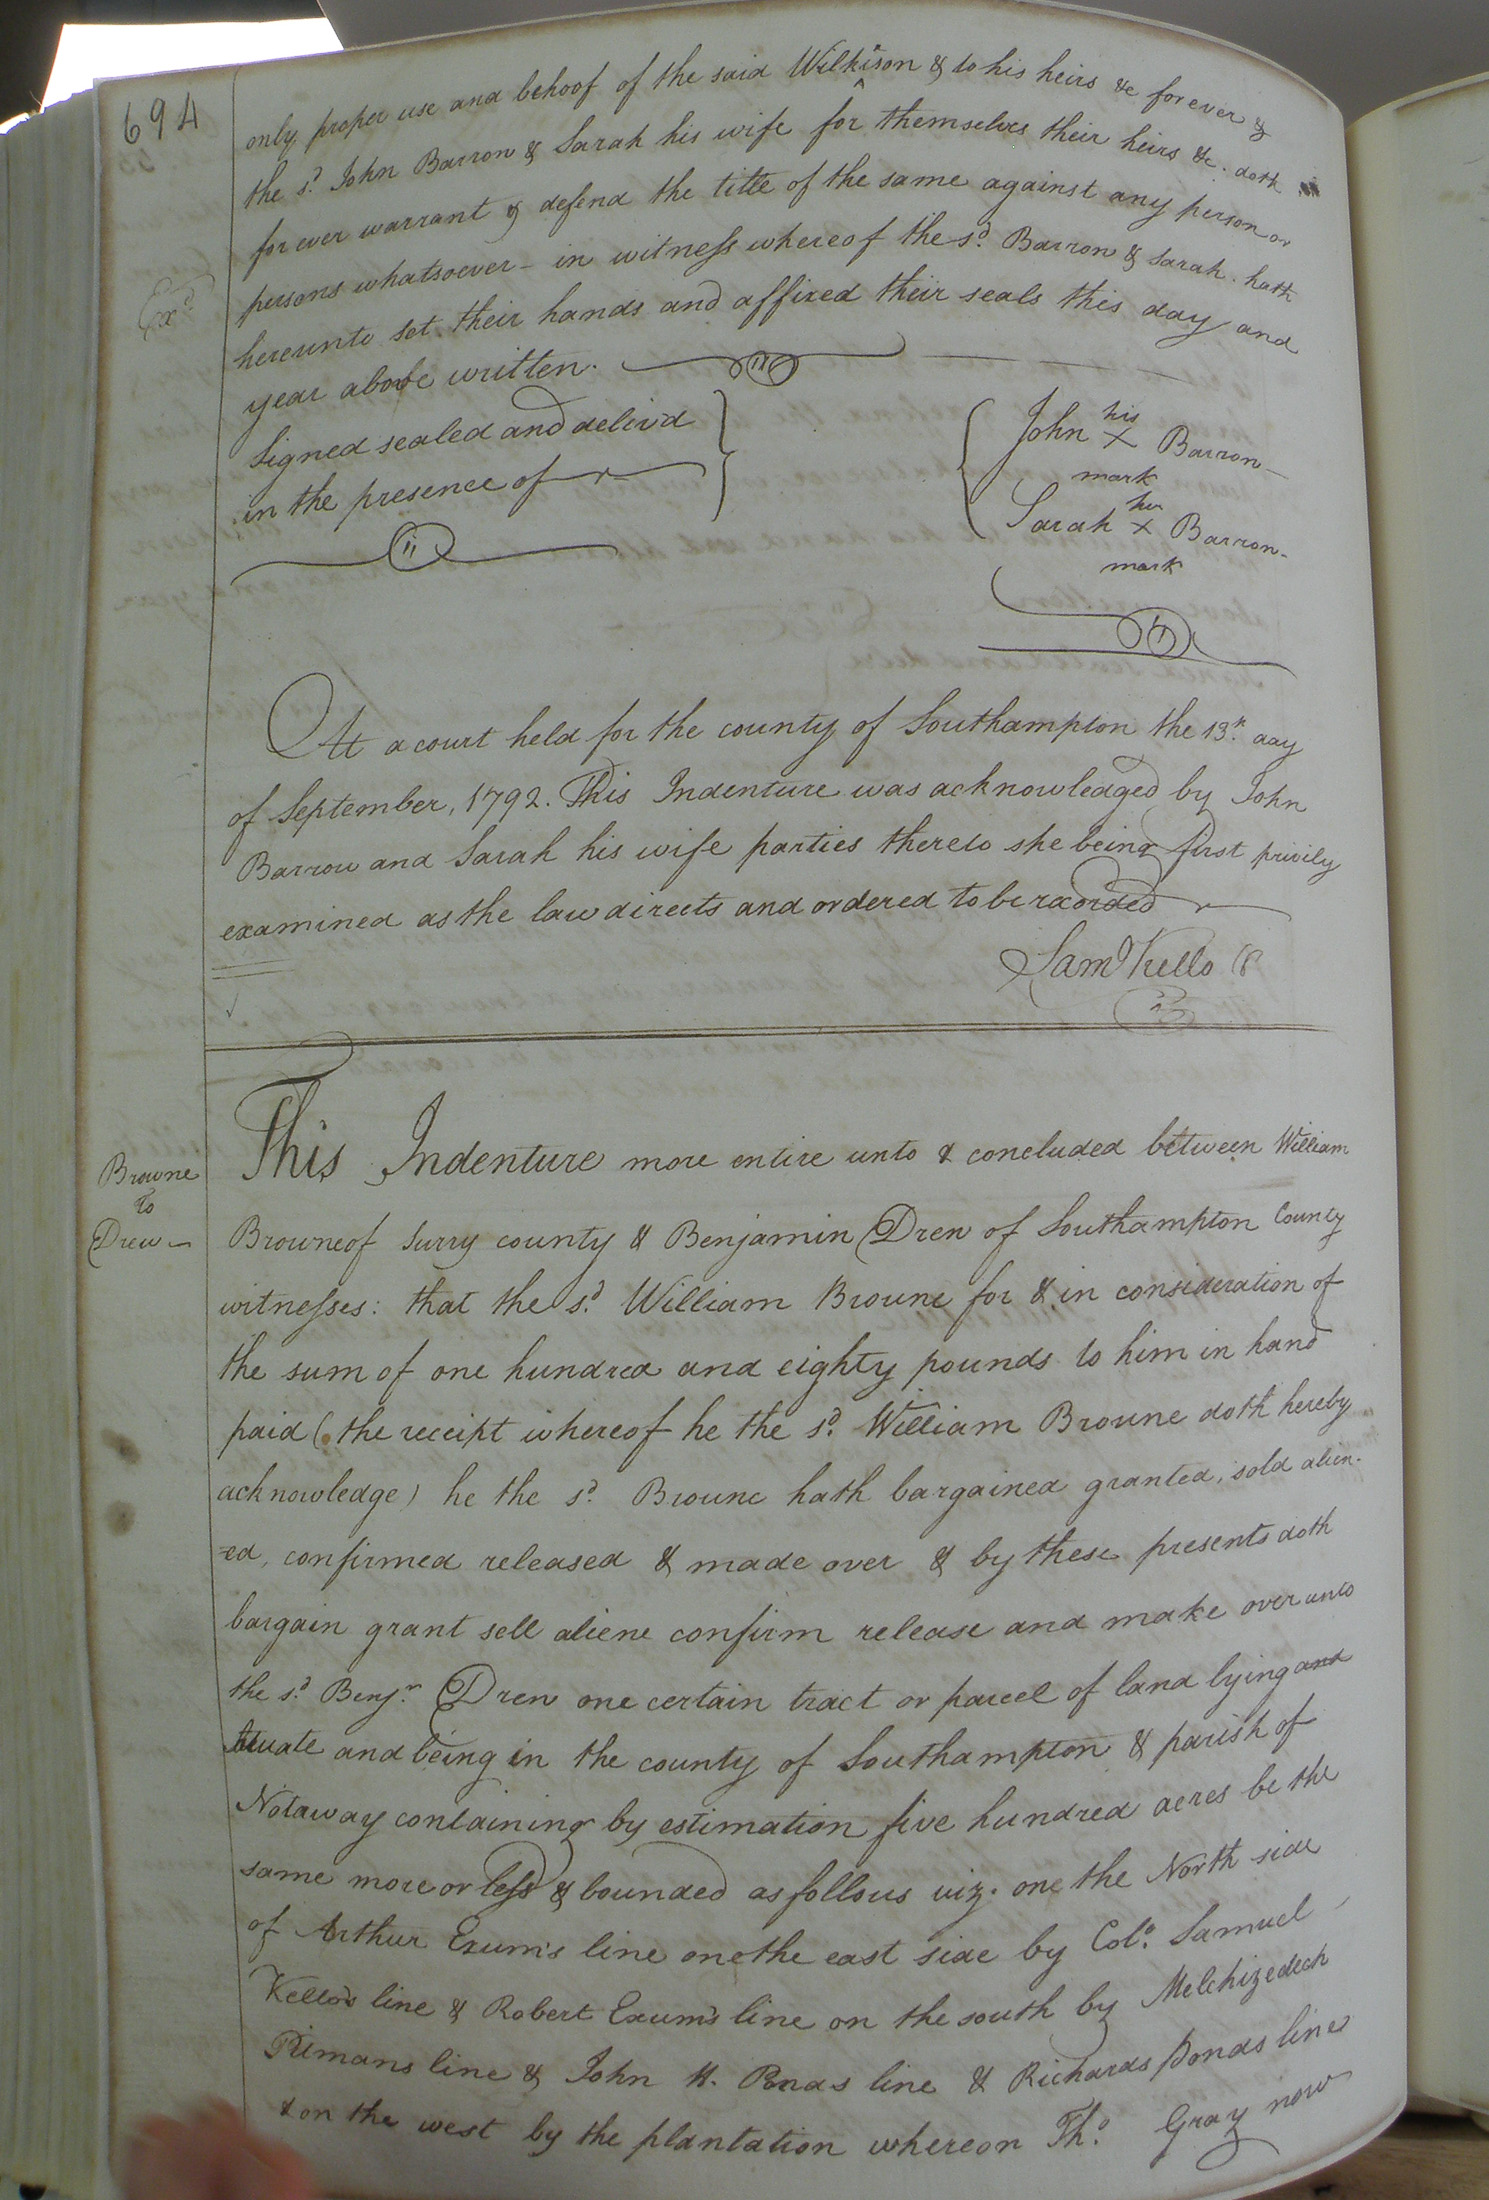 694
only proper use and behoof of the said Wilkison & to his heirs &c for ever &
the sd. John Barron & Sarah his wife for themselves their heirs &c. doth
for ever warrant & defend the title of the same against any person or
persons whatsoever - in witness whereof the sd. Barron & Sarah. hath
Exd
hereunto set their hands and affixed their seals this day and
year above written.
Signed sealed and deliv'd
in the presence of
his
John X Barron
mark
her
Sarah X Barron
mark
At a court held for the county of Southampton the 13th. day
of September, 1792. This Indenture was acknowledged by John
Barrow and Sarah his wife parties thereto she being first privily
examined as the law directs and ordered to be recorded
Saml Kello
Browne
to
Drew
This Indenture more entire unto & concluded between William
Browne of Surry county & Benjamin Drew of Southampton County
witnesses: that the sd. William Browne for & in consideration of
the sum of one hundred and eighty pounds to him in hand
paid (the receipt whereof he the sd. William Browne doth hereby
acknowledge) he the sd. Browne hath bargained granted, sold alien-
=ed, confirmed released & made over & by these presents doth
bargain grant sell aliene confirm release and make over unto
the sd. Benjn. Drew one certain tract or parcel of land lying and
situate and being in the county of Southampton & parish of
Notaway containing by estimation five hundred acres be the
same more or less & bounded as follows viz. one the North side
of Arthur Exum's line one the east side by Colo. Samuel
Kello's line & Robert Exum's line on the south by Melchizedech
line & John H. Ponds line & Richards Ponds line
& on the west by the plantation whereon Tho. Gray now